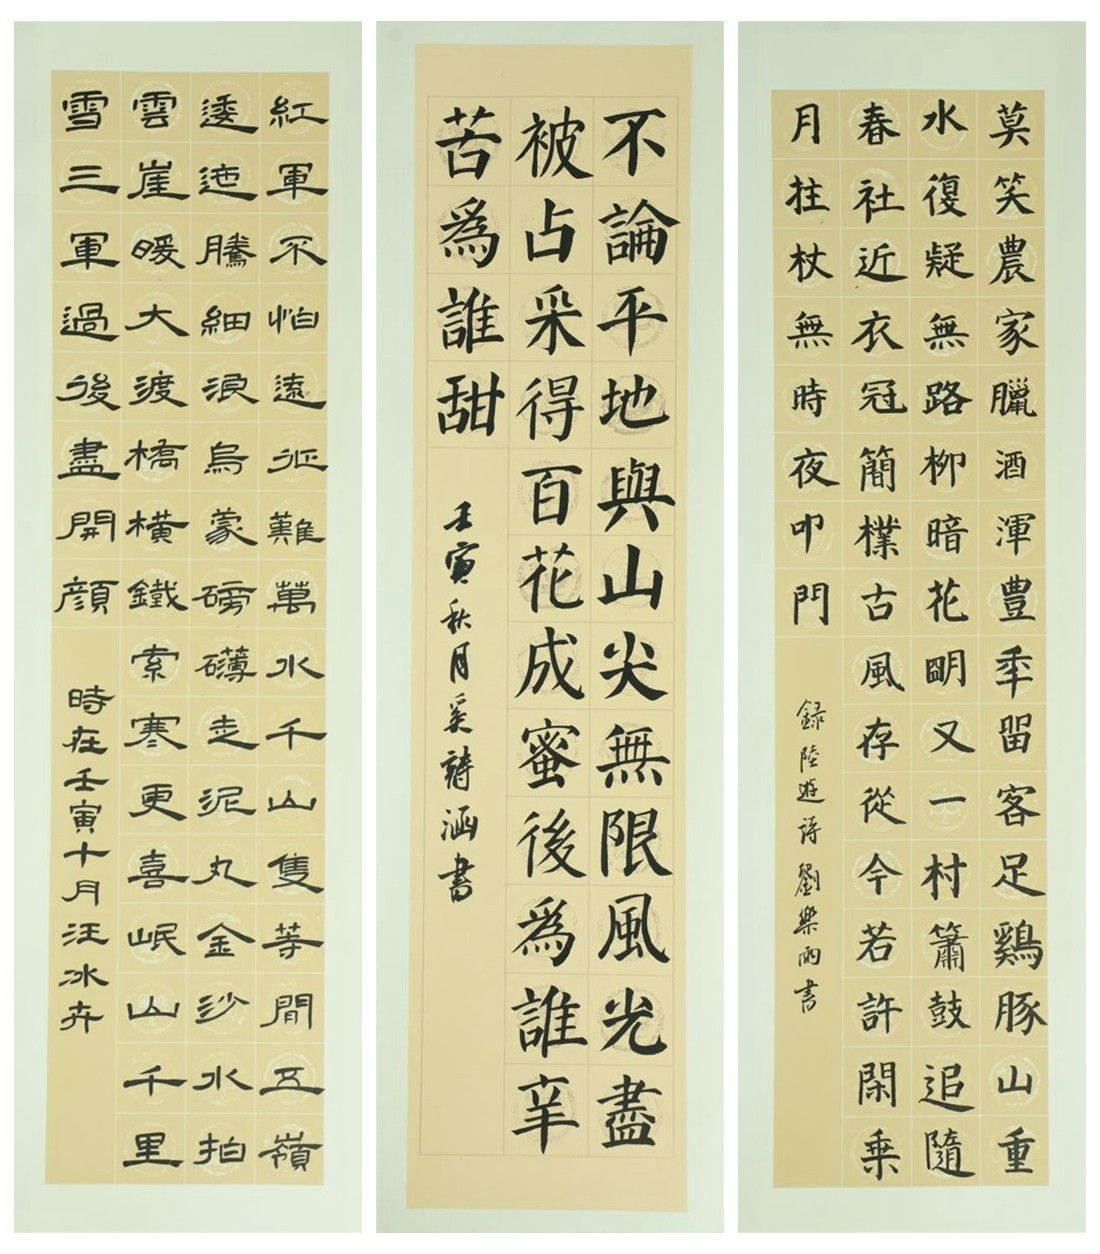 紅軍不怕遠征難萬水千山隻等閒五嶺
逶迤騰細浪烏蒙磅礴走泥丸金沙水拍
雲崖暖大渡橋橫鐵索寒更喜岷山千里
雪三軍過後盡開顔
時在壬寅十月汪冰卉
不論平地與山尖無限風光盡
被占采得百花成蜜後爲誰辛
苦爲誰甜
壬寅秋月奚詩涵書
莫笑農家臘酒渾豊年留客足鷄豚山重
水復疑無路柳暗花明又一村簫鼓追隨
春社近衣冠簡樸古風存從今若許閑乘
月拄杖無時夜叩門
録陸遊詩劉樂雨書